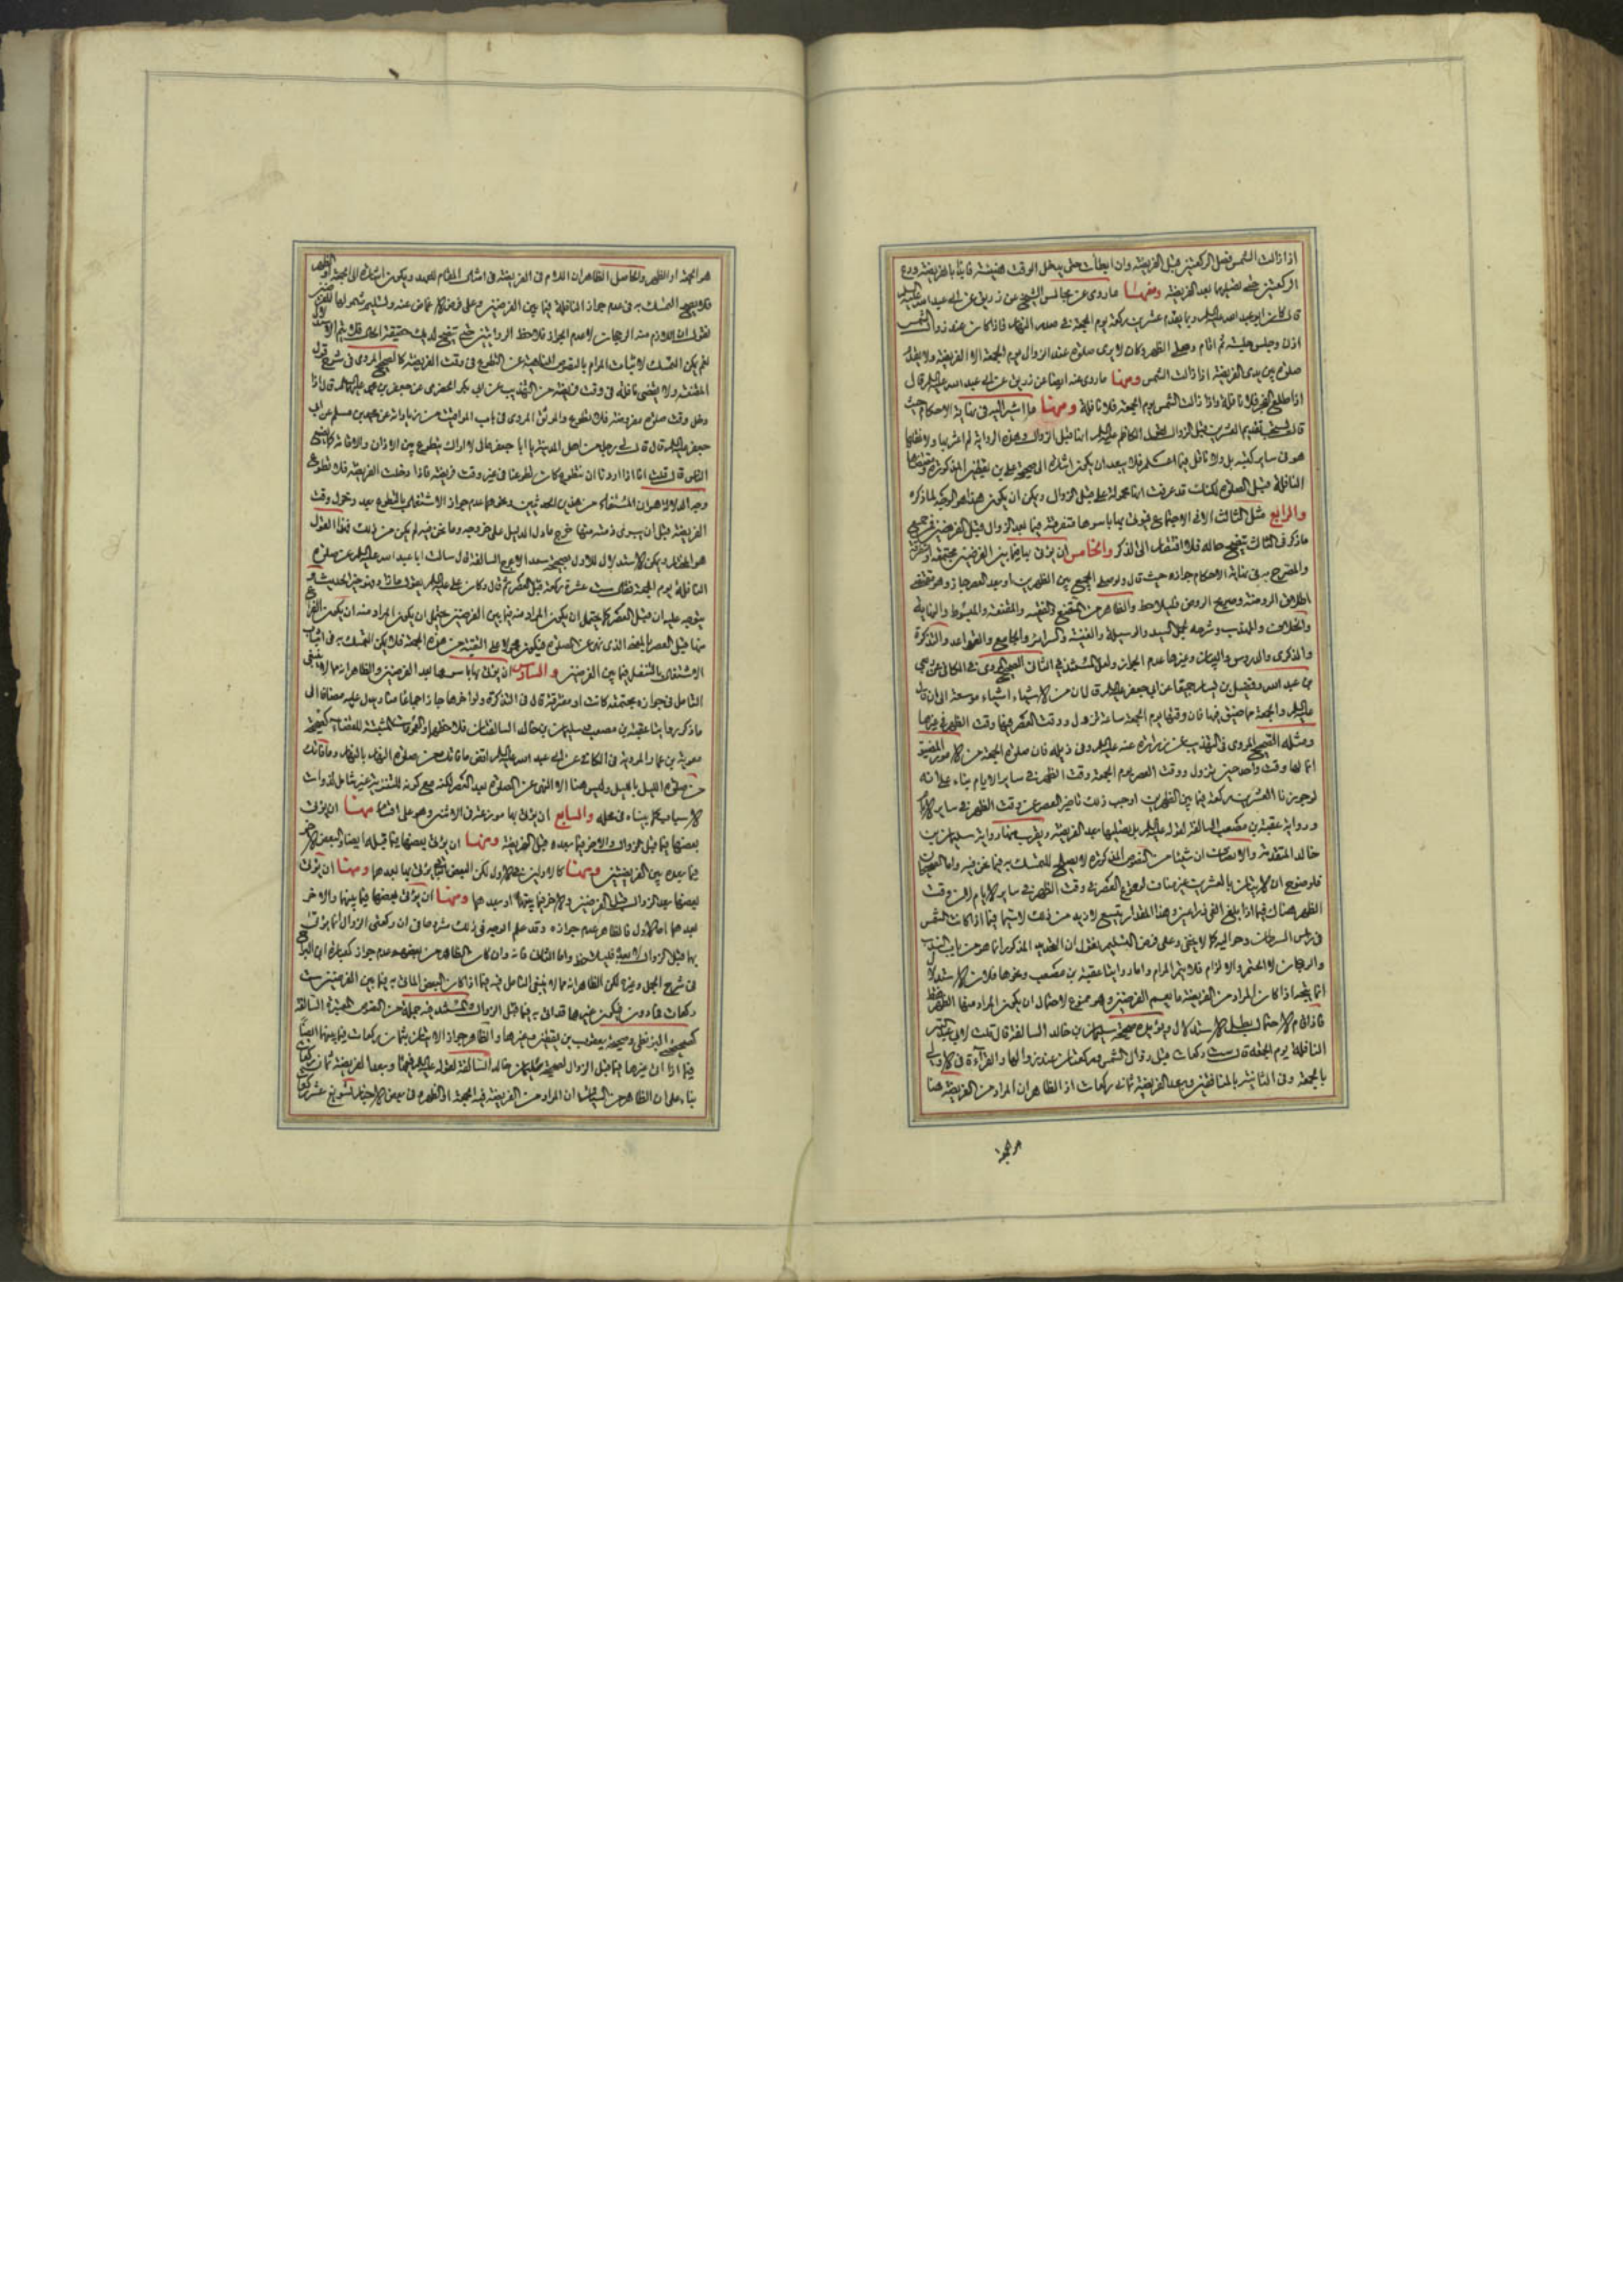 اذا زالت الشمس فصل الركعتين قبل الفريضة وان ابطأت حتى يدخل الوقت هنيئة فابدأ بالفريضة ودع
الركعتين حتى تصليهما بعد الفريضة ومنها ما روى عن مجالس الشيخ عن زريق عن ابي عبد الله عليه السلم
قال كان ابو عبد الله عليه السلم ربما يقدم عشرين ركعة يوم الجمعة في صدر النهار فاذا كان عند زوال الشمس
اذن وجلس جلسة ثم اقام وصلى الظهر وكان لا يرى صلوة عند الزوال يوم الجمعة الا الفريضة ولا يقدم
صلوة بين يدى الفريضة اذا زالت الشمس ومنها ما روى عنه ايضا عن زريق عن ابي عبد الله عليه السلم قال
اذا طلع الفجر فلا نافلة واذا زالت الشمس يوم الجمعة فلا نافلة ومنها ما اشير اليه في نهاية الاحكام حيث
قال يستحب تقديم العشرين قبل الزوال لقول الكاظم عليه السلم انها قبل الزوال وهذه الرواية لم اعثر بها ولا نقلها
هو في ساير كتبه بل ولا ناقل فيما اعلم فلا يبعد ان يكون اشارة الى صحيحة علي بن يقطين المذكورة ومقتضاها
النافلة قبل الصلوة لكنك قد عرفت انها محمولة على قبل الزوال ويمكن ان يكون هذا هو الوجه لما ذكره
والرابع مثل الثالث الا في الاجتماع فيؤتى بها باسرها متفرقة فيما بعد الزوال قبل الفرضين فمن جميع
ما ذكر في الثالث يتضح حاله فلا افتقار الى الذكر والخامس ان يؤتى بها فيما بين الفرضين مجتمعة او متفرقة
والمصرح به في نهاية الاحكام جوازه حيث قال ولو صلى الجميع بين الظهرين او بعد العصر جاز وهو مقتضى
اطلاق الروضة وصريح الروض فليلاحظ والظاهر من المقنع والفقيه والمقنعة والمبسوط والنهاية
والخلاف والمهذب وشرحه لجمل السيد والوسيلة والغنية والسرائر والجامع والقواعد والتذكرة
والذكرى والدروس والبيان وغيرها عدم الجواز ولعل المستند في الثاني الصحيح المروى في الكافي عن ربعي
بن عبد الله وفضيل بن يسار جميعا عن ابي جعفر عليه السلم قال ان من الاشياء اشياء موسعة الى ان قال
عليه السلم والجمعة مما ضيق فيها فان وقتها يوم الجمعة ساعة تزول ووقت العصر فيها وقت الظهر في غيرها
ومثله الصحيح المروى في التهذيب عن زرارة عنه عليه السلم وفي ذيله فان صلوة الجمعة من الامر المضيق
انما لها وقت واحد حين تزول ووقت العصر يوم الجمعة وقت الظهر في ساير الايام بناء على انه
لو جوزنا العشرين ركعة فيما بين الظهرين اوجب ذلك تاخير العصر عن وقت الظهر في ساير الايام
ورواية عقبة بن مصعب السالفة لقوله عليه السلم بل تصليها بعد الفريضة ويقرب منها رواية سليمان بن
خالد المتقدمة والانصاف ان شيئا من النصوص المذكورة لا يصلح للتمسك به فيما نحن فيه واما الصحيحان
فلوضوح ان الاتيان بالعشرين غير مناف لوقوع العصر في وقت الظهر في ساير الايام لان وقت
الظهر هناك فيما اذا بلغ الفئ ذراعين وهذا المقدار يتسع لازيد من ذلك لا سيما فيما اذا كانت الشمس
في رأس السرطان وحواليه كما لا يخفى وعلى فرض التسليم نقول ان التحديد المذكور انما هو من باب الندب
والرجحان لا الحتم والالزام فلا يتم المرام واما روايتا عقبة بن مصعب ونحوها فلان الاستدلال
انما يتم اذا كان المراد من الفريضة ما يعم الفرضين وهو ممنوع لاحتمال ان يكون المراد منها الظهر فقط
فاذا قام الاحتمال بطل الاستدلال ويؤيده صحيحة سليمان بن خالد السالفة قال قلت لابي عبد الله
النافلة يوم الجمعة قال ست ركعات قبل زوال الشمس وركعتان عند زوالها والقراءة في الاولى
بالجمعة وفي الثانية بالمنافقين وبعد الفريضة ثماني ركعات اذ الظاهر ان المراد من الفريضة هنا
هو الجمعة
هو الجمعة او الظهر والحاصل الظاهر ان اللام في الفريضة في امثال المقام للعهد ويكون اشارة الى الجمعة او الظهر
فلا يصح التمسك به في عدم جواز النافلة فيما بين الفرضين وعلى فرض الاغماض عنه وتسليم شمولها للفرضين
نقول ان اللازم منه الرجحان لا عدم الجواز فلاحظ الروايتين حتى يتضح لديك حقيقة الحال فلا يتم الاستدلال
نعم يمكن التمسك لاثبات المرام بالنصوص الناهية عن التطوع في وقت الفريضة كالصحيح المروى في
المقنعة ولا يقضى نافلة في وقت فريضة من التهذيب عن ابي بكر الحضرمي عن جعفر بن محمد عليهما السلم قال اذا
دخل وقت صلوة مفروضة فلا تطوع والموثق المروى في باب المواقيت من زياداته عن محمد بن مسلم عن ابي
جعفر عليه السلم قال قال لي رجل من اهل المدينة يا ابا جعفر مالي لا اراك تتطوع بين الاذان والاقامة كما يصنع
الناس قال قلت انا اذا اردنا ان نتطوع كان تطوعنا في غير وقت فريضة فاذا دخلت الفريضة فلا تطوع
وجه الدلالة هو ان المستفاد من هذين الحديثين ونحوهما عدم جواز الاشتغال بالتطوع بعد دخول وقت
الفريضة قبل ان يبرئ ذمته منها خرج ما دل الدليل على خروجه وما نحن فيه لم يكن من ذلك فهذا القول
هو المختار ويمكن الاستدلال للاول بصحيحة سعد الاعرج السالفة قال سالت ابا عبد الله عليه السلم عن صلوة
النافلة يوم الجمعة فقال ست عشرة ركعة قبل العصر ثم قال وكان علي عليه السلم يقول ما زاد فهو خير الحديث
يتوجه عليه ان قبل العصر كما يحتمل ان يكون المراد منه فيما بين الفرضين يحتمل ان يكون المراد منه ان يكون الفراغ
منها قبل العصر بالمعنى الذي نهى عن الصلوة فيكون محمولا على التقية من هذه الجهة فلا يمكن التمسك به في اثبات
الاشتغال بالتنفل فيما بين الفرضين والسادس ان يؤتى بها باسرها بعد الفرضين والظاهر انه مما لا ينبغي
التامل في جوازه مجتمعة كانت او متفرقة قال في التذكرة ولو اخرها جاز اجماعا منا ويدل عليه مضافا الى
ما ذكر روايتا عقبة بن مصعب وسليمان بن خالد السالفتان فلاحظهما والعمومات المثبتة للقضاء كصحيحة
معوية بن عمار المروية في الكافي عن ابي عبد الله عليه السلم اقض ما فاتك من صلوة النهار بالنهار وما فاتك
من صلوة الليل بالليل وليس هنا الا النهي عن الصلوة بعد العصر لكنه مع كونه للتنزيه غير شامل لذوات
الاسباب كما بيناه في محله والسابع ان يؤتى بها موزعة في الاثنين وهو على اقسام منها ان يؤتى
بعضها فيما قبل الزوال والاخر فيما بعده قبل الفريضة ومنها ان يؤتى بعضها فيما قبله ايضا والبعض الاخر
فيما بعده بين الفريضتين ومنها كالاولين في الاول لكن البعض الاخر يؤتى بها بعدهما ومنها ان يؤتى
بعضها بعد الزوال قبل الفرضين والاخر فيما بينهما او بعدهما ومنها ان يؤتى بعضها فيما بينهما والاخر
بعدهما اما الاول فالظاهر عدم جوازه وقد علم الوجه في ذلك شرحها في ان ركعتي الزوال انما يؤتى
بها قبل الزوال لا بعده فليلاحظ واما الثاني فانه وان كان الظاهر من بعضهم عدم جوازه كعبارة ابن البراج
في شرح الجمل وغيره لكن الظاهر انه مما لا ينبغي التامل فيه فيما اذا كان البعض الماتى به فيما بين الفرضين ست
ركعات فما دون فيكون غيرها قد اتى به فيما قبل الزوال والمستند فيه جملة من النصوص المعتبرة السالفة
كصحيحتي البزنطي وصحيحة يعقوب بن يقطين وغيرها والظاهر جواز الاتيان بثمان ركعات فيما بينهما ايضا
فيما اذا اتى بغيرها فيما قبل الزوال لصحيحة سليمان بن خالد السالفة لقوله عليه السلم فيها وبعد الفريضة ثمان ركعات
بناء على ان الظاهر من السياق ان المراد من الفريضة فيه الجمعة او الظهر